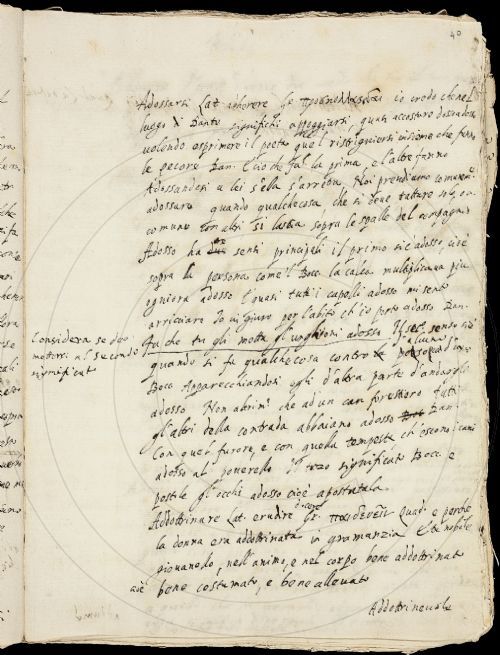 40
Adossarsi Lat. adherere Gr. io credo che nel
luogo di Dante significhi appoggiarsi, quasi accostare dosso a dosso
volendo esprimere il poeta quel ristrignersi insieme che fanno
le pecore Dan. E ciò che fa la prima, e l'altre fanno
Adossandosi a lei s'ella s'arresta. Noi prendiamo comunem.
adossare quando qualche cosa che si deve trattare
comune con altri si lascia sopra le spalle del compagno
Adosso ha due sensi principali il primo si è adosso, cioè
sopra la persona come il Bocc. la calca multiplicava più
ogniora adosso E quasi tutti i capelli adosso mi sento
arricciare Io vi giuro per l'abito ch'io porto adosso Dan.
Fa che tu gli metta gl'unghioni adosso Il sec. senso si è
quando si fa qualche cosa contro alcuna
Bocc. Apparecchiandosi egli d'altra parte d'andargli
adosso Non altrim. che ad un can forestiero tutti
gl'altri della contrada abbaiano adosso Dan.
Con quel furore, e con quella tempesta ch'escono i cani
adosso al poverello Il terzo significato Bocc. e
postile gl'occhi adosso cioè apostatala
Considera se deo
mettersi al secondo
significato
Addottrinare Lat. erudire docere Gr. παιδεύειν quad. e perche
la donna era addottrinata in gramanzia E
giovanetto, nell'animo, e nel corpo bene addottrinato
cioè bene costumato, e bene allevato
Addottrinevole